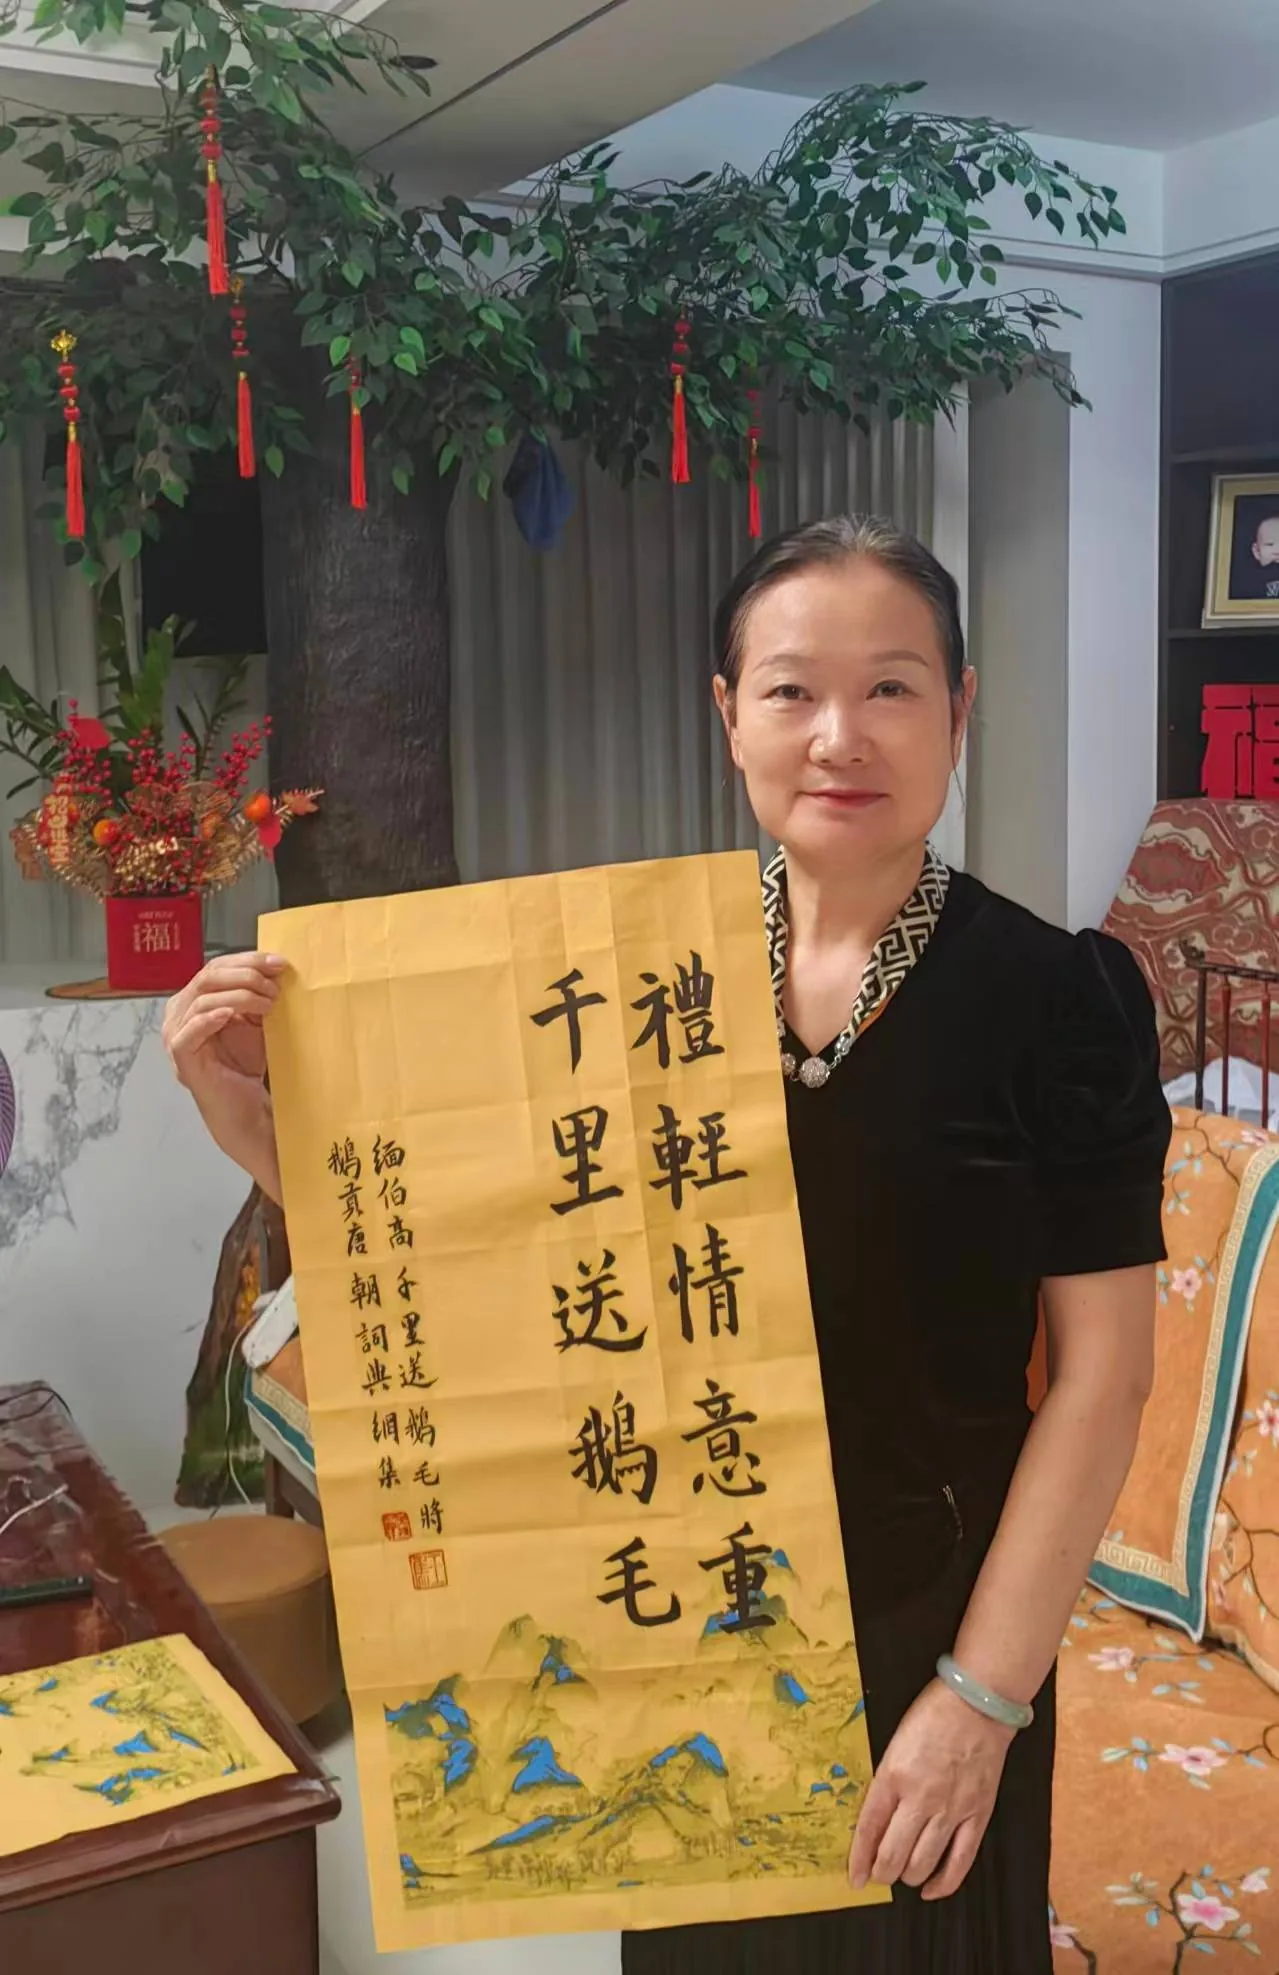 禮輕情意重
千里送鵝毛
缅伯高千里送鵝毛將
鵝貢唐朝詞典網集
福
福